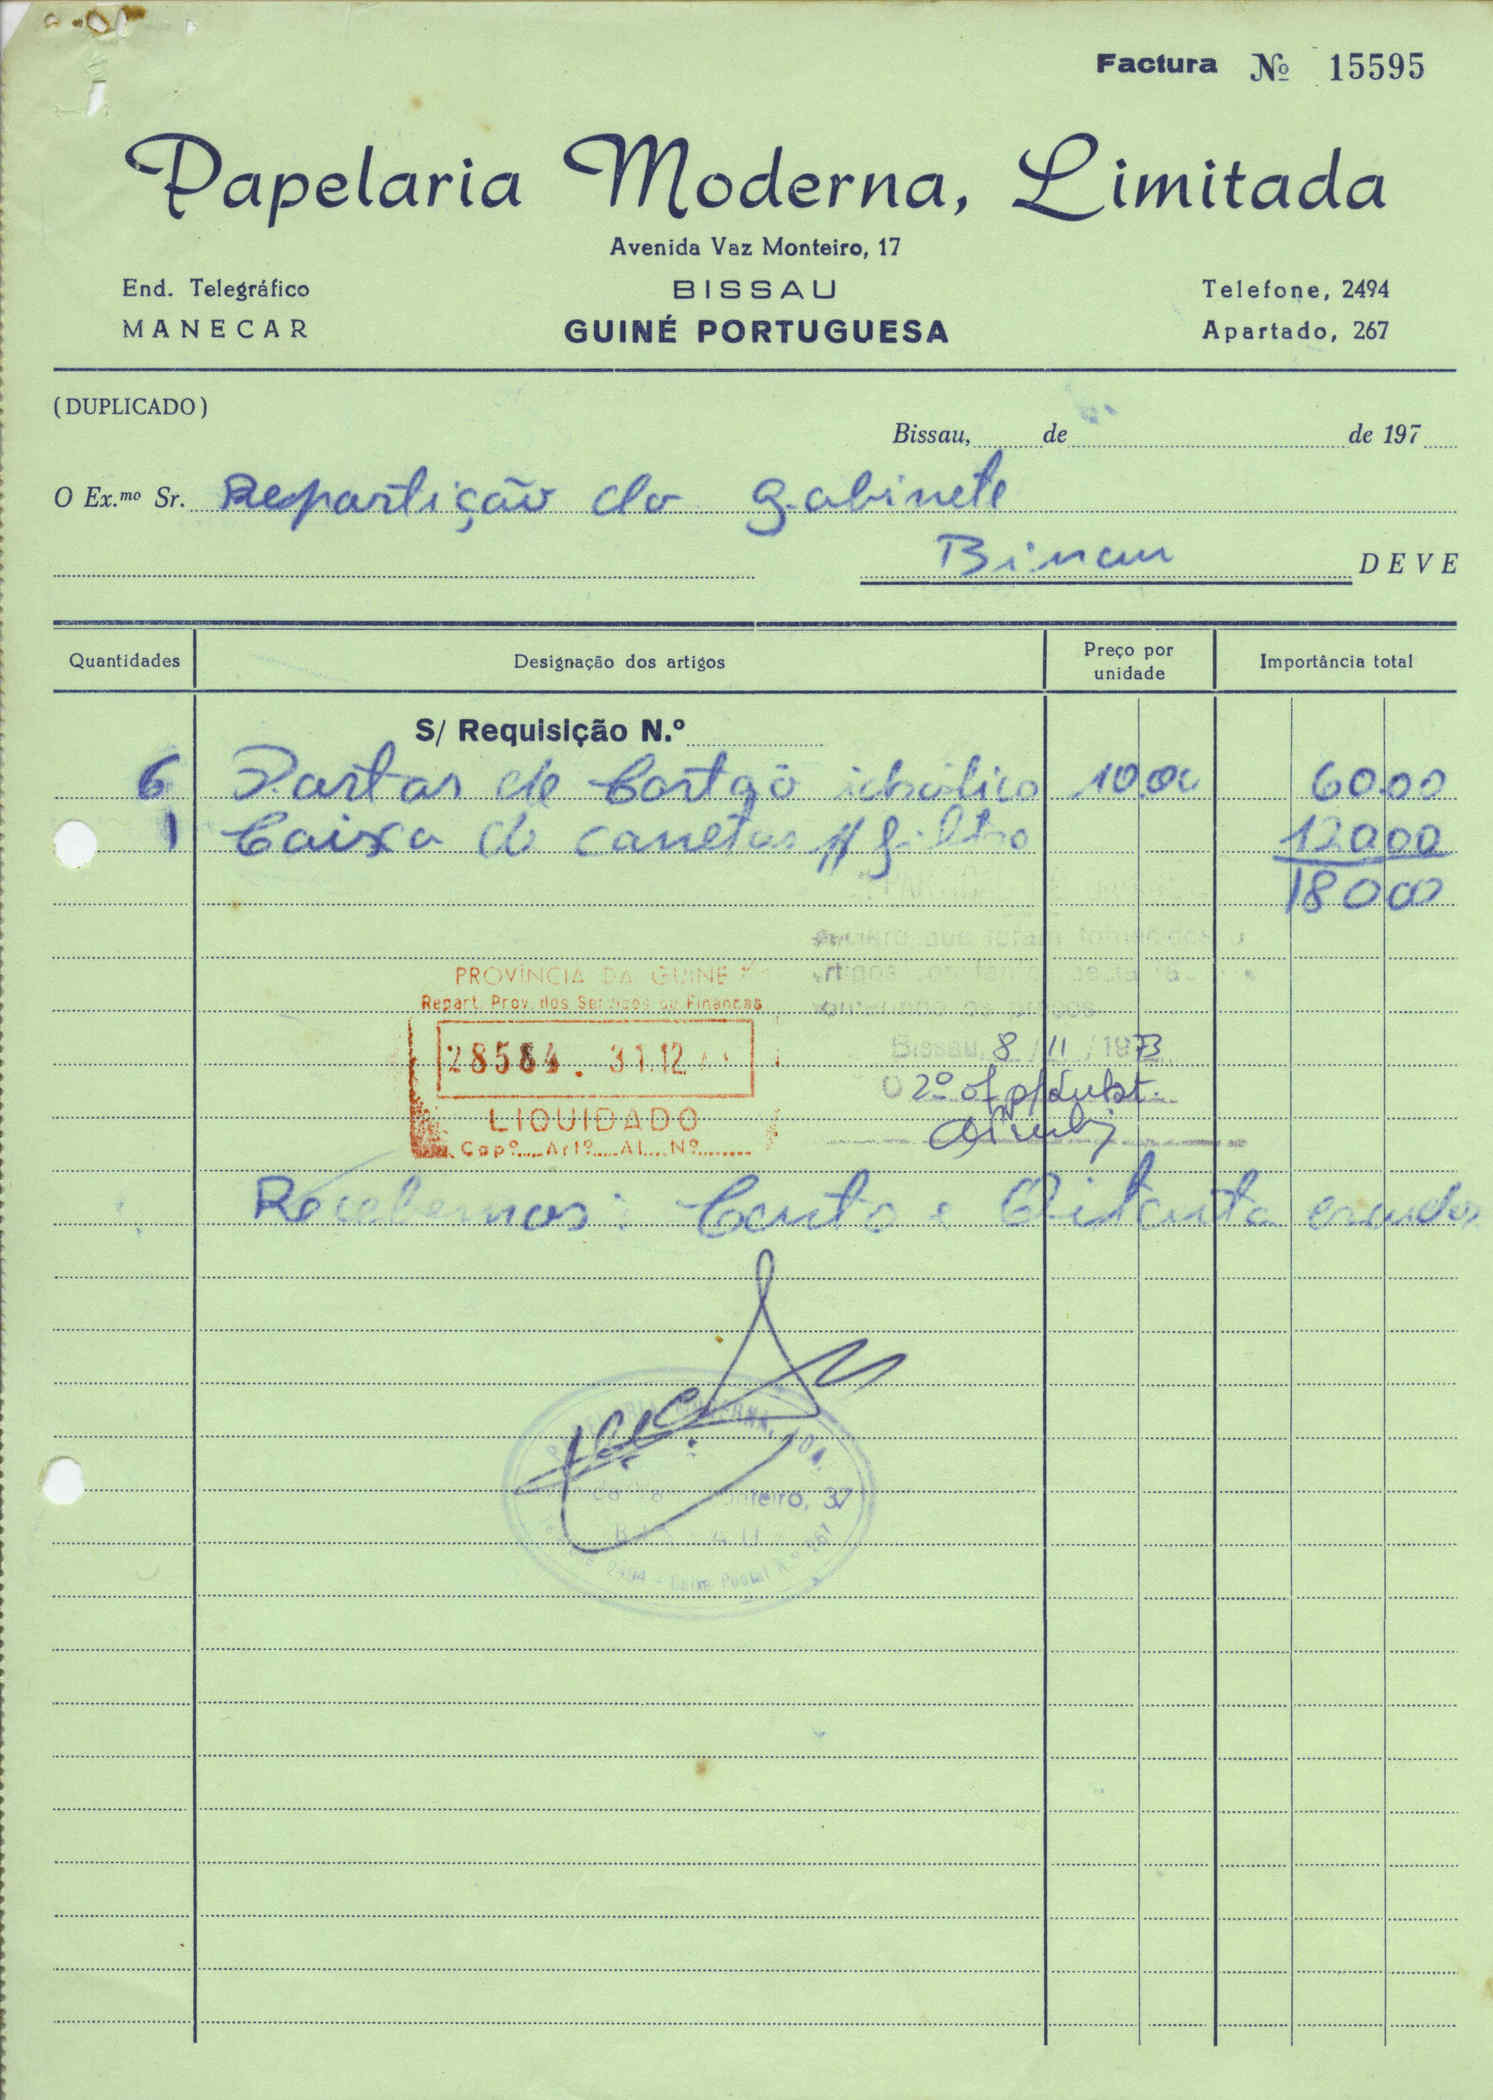 Factura Nº 15595
Papelaria Moderna, Limitada
Avenida Vaz Monteiro, 17
End. Telegráfico BISSAU Telefone, 2494
MANECAR GUINÉ PORTUGUESA Apartado, 267
(DUPLICADO)
Bissau, de de 197
O Ex.mo Sr. Repartição do Gabinete
Bissau DEVE
Quantidades Designação dos artigos Preço por unidade Importância total
S/ Requisição N.º
6 Pastas de Cartão 10,00 60,00
1 Caixa de canetas filtro 120,00
180,00
declaro que foram fornecidos o
artigos
os preços
PROVÍNCIA DA GUINÉ
Repart. Prov. dos Serviços de Finanças
Bissau, 8 / 11 / 1973
28584. 31.12
O 2º of p/subst.
LIQUIDADO
Capº.... Artº.... Al.... Nº.......
Recebemos: Cento e Oitenta escudos
PAPELARIA MODERNA, LDA.
Monteiro, 37
BISSAU
2494 - Caixa Postal N.º 267